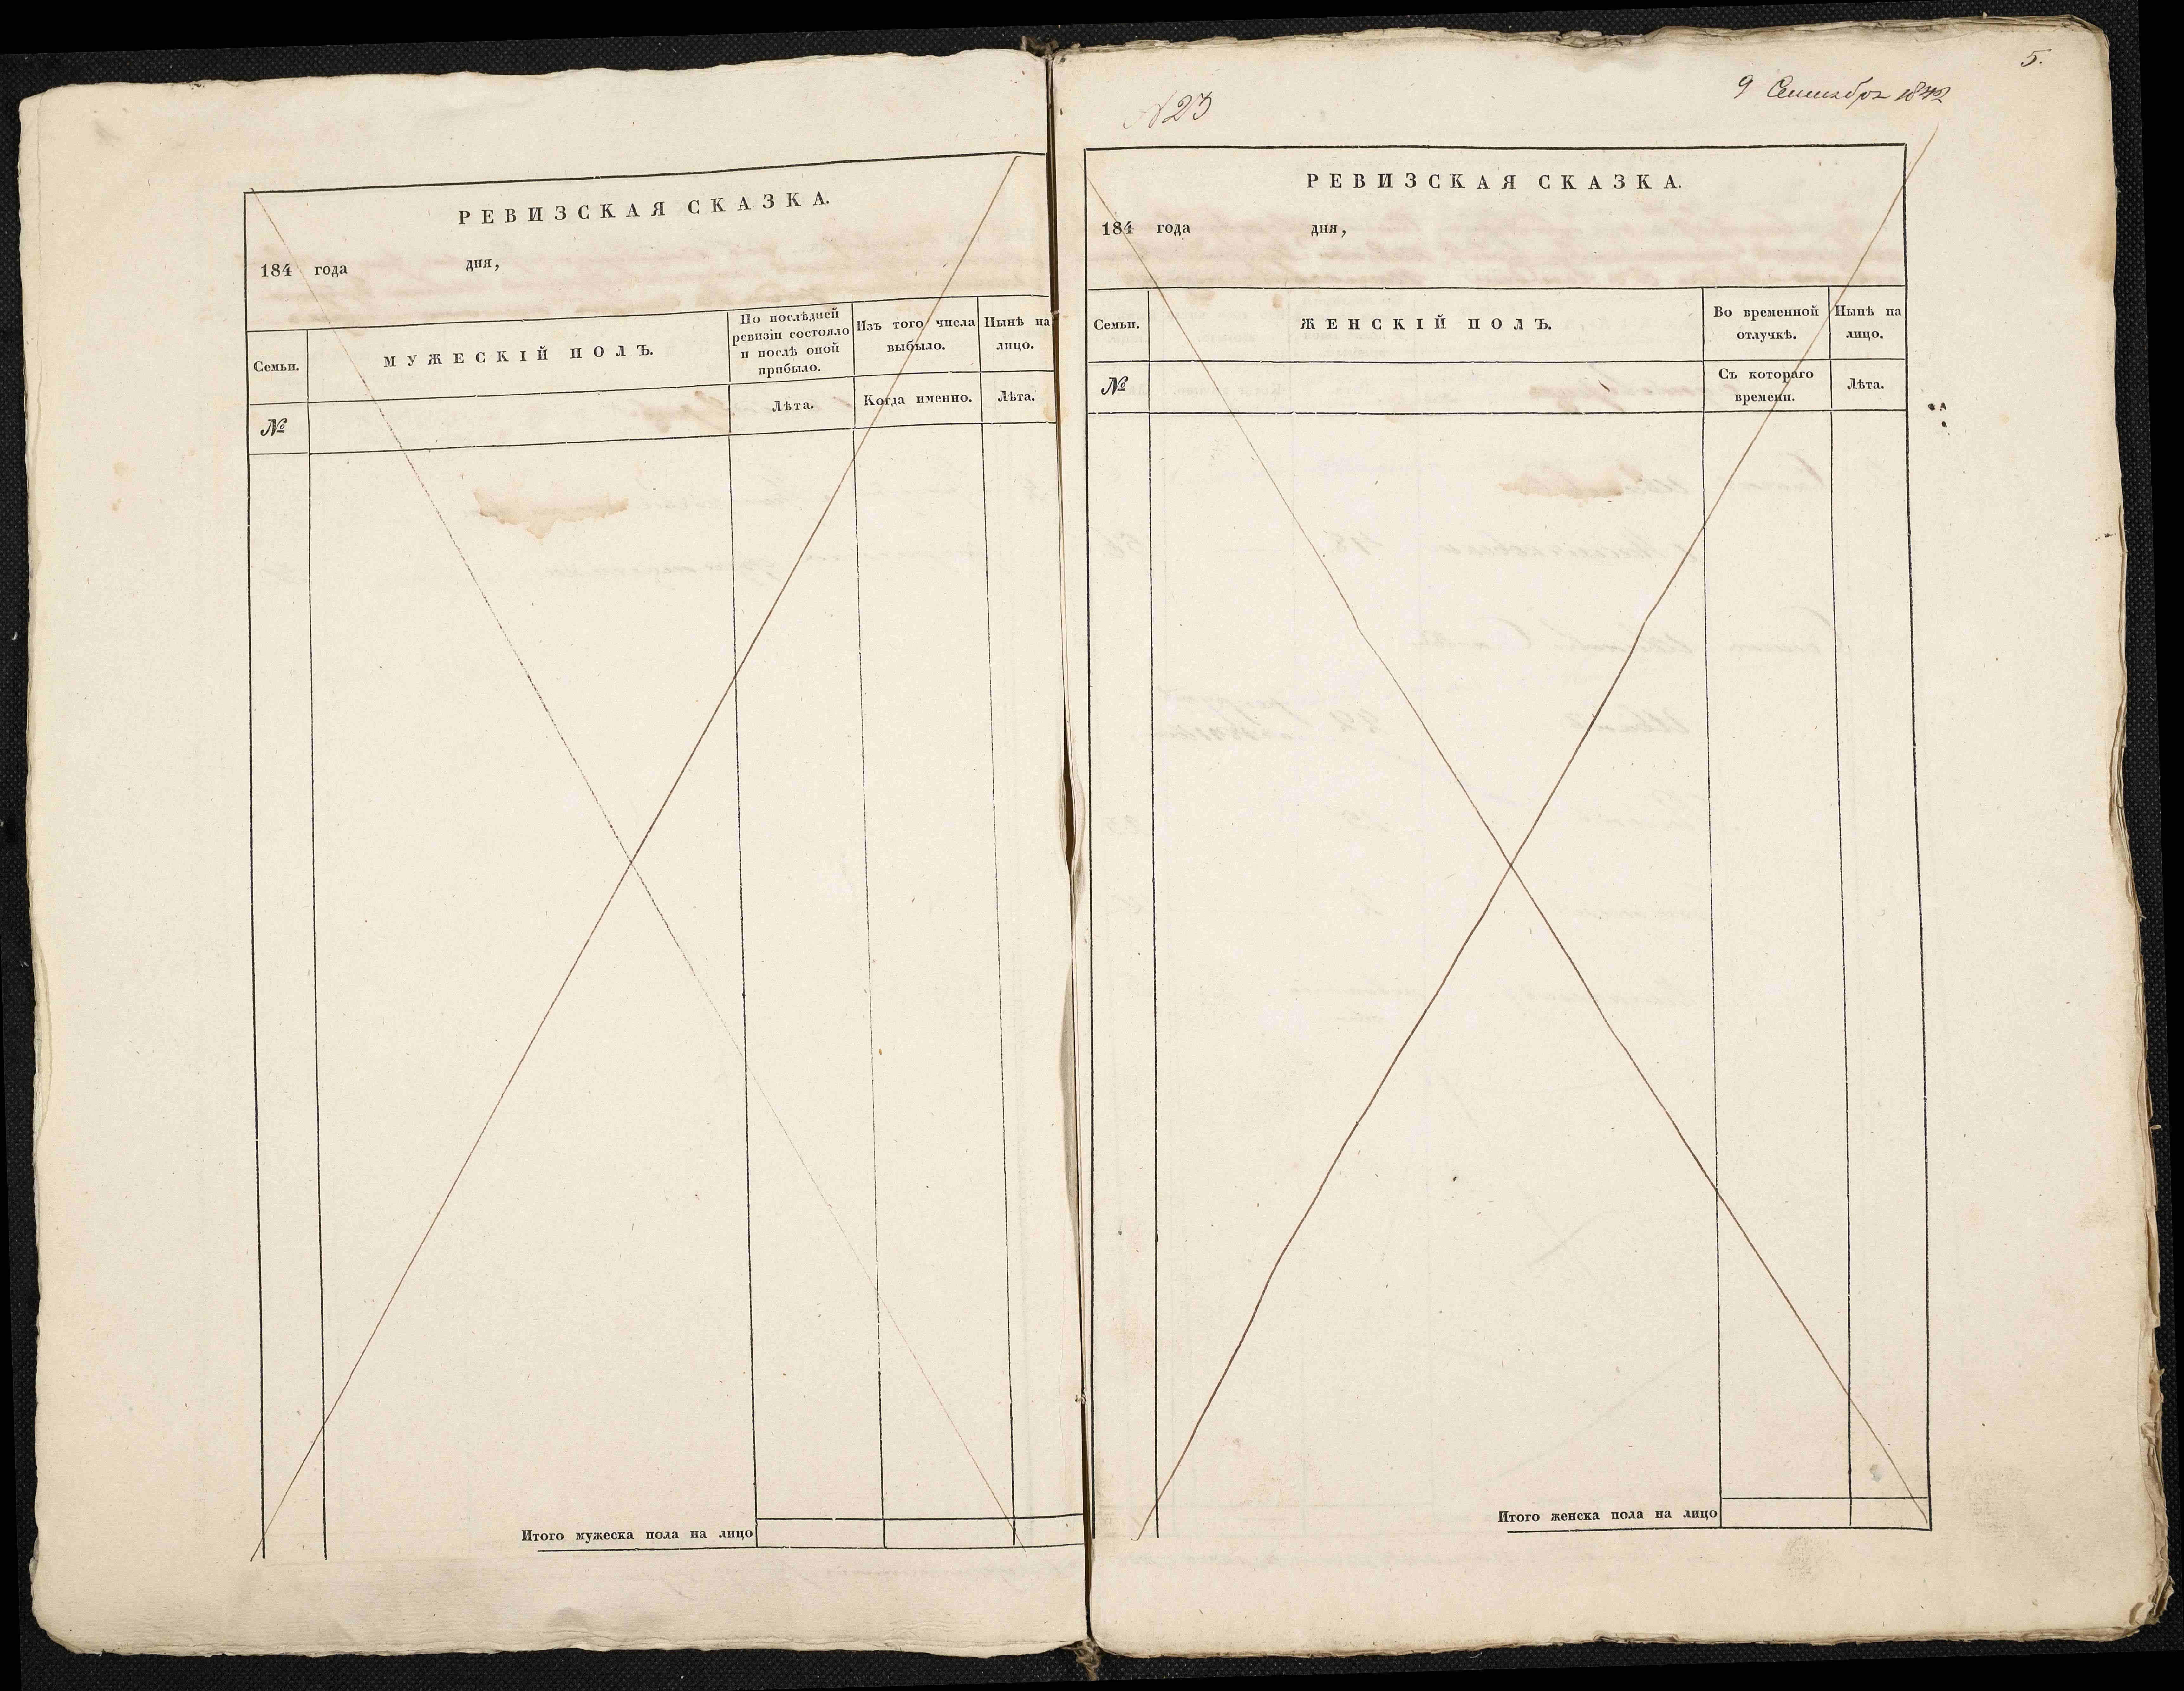 РЕВИЗСКАЯ СКАЗКА.
184 года дня,
Семьи.
МУЖЕСКІЙ ПОЛЪ.
По послѣдней
ревизіи состояло
и послѣ оной
прибыло.
Изъ того числа
выбыло.
Нынѣ на
лицо.
№
Лѣта.
Когда именно.
Лѣта.
Итого мужеска пола на лицо
5.
9 Сентября 1842
№23
РЕВИЗСКАЯ СКАЗКА.
184 года дня,
Семьи.
ЖЕНСКІЙ ПОЛЪ.
Во временной
отлучкѣ.
Нынѣ на
лицо.
№
Съ котораго
времени.
Лѣта.
Итого женска пола на лицо